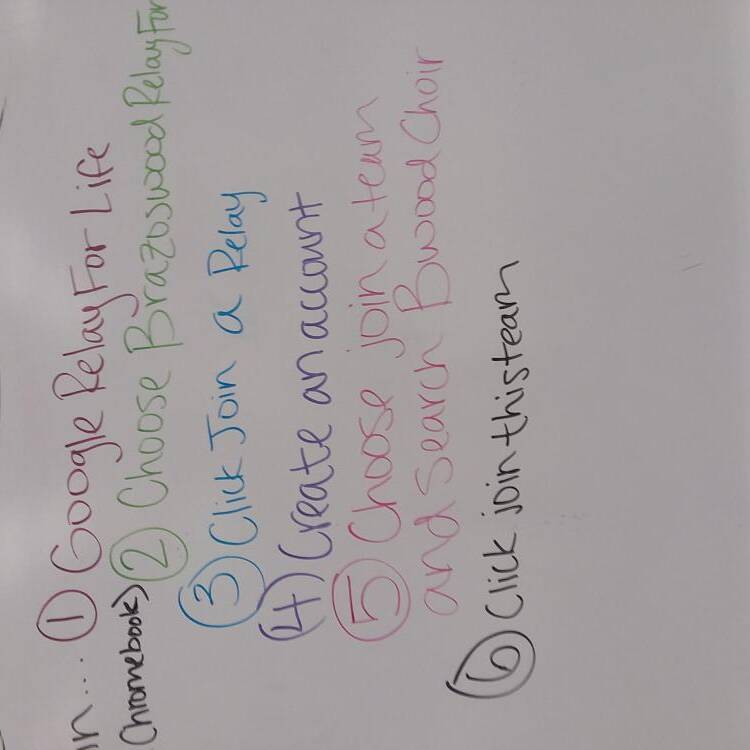 in... ① Google Relay For Life
Chromebook) ② Choose Brazoswood Relay For
③ Click Join a Relay
④ Create an account
⑤ Choose join a team
and search Bwood Choir
⑥ Click join this team